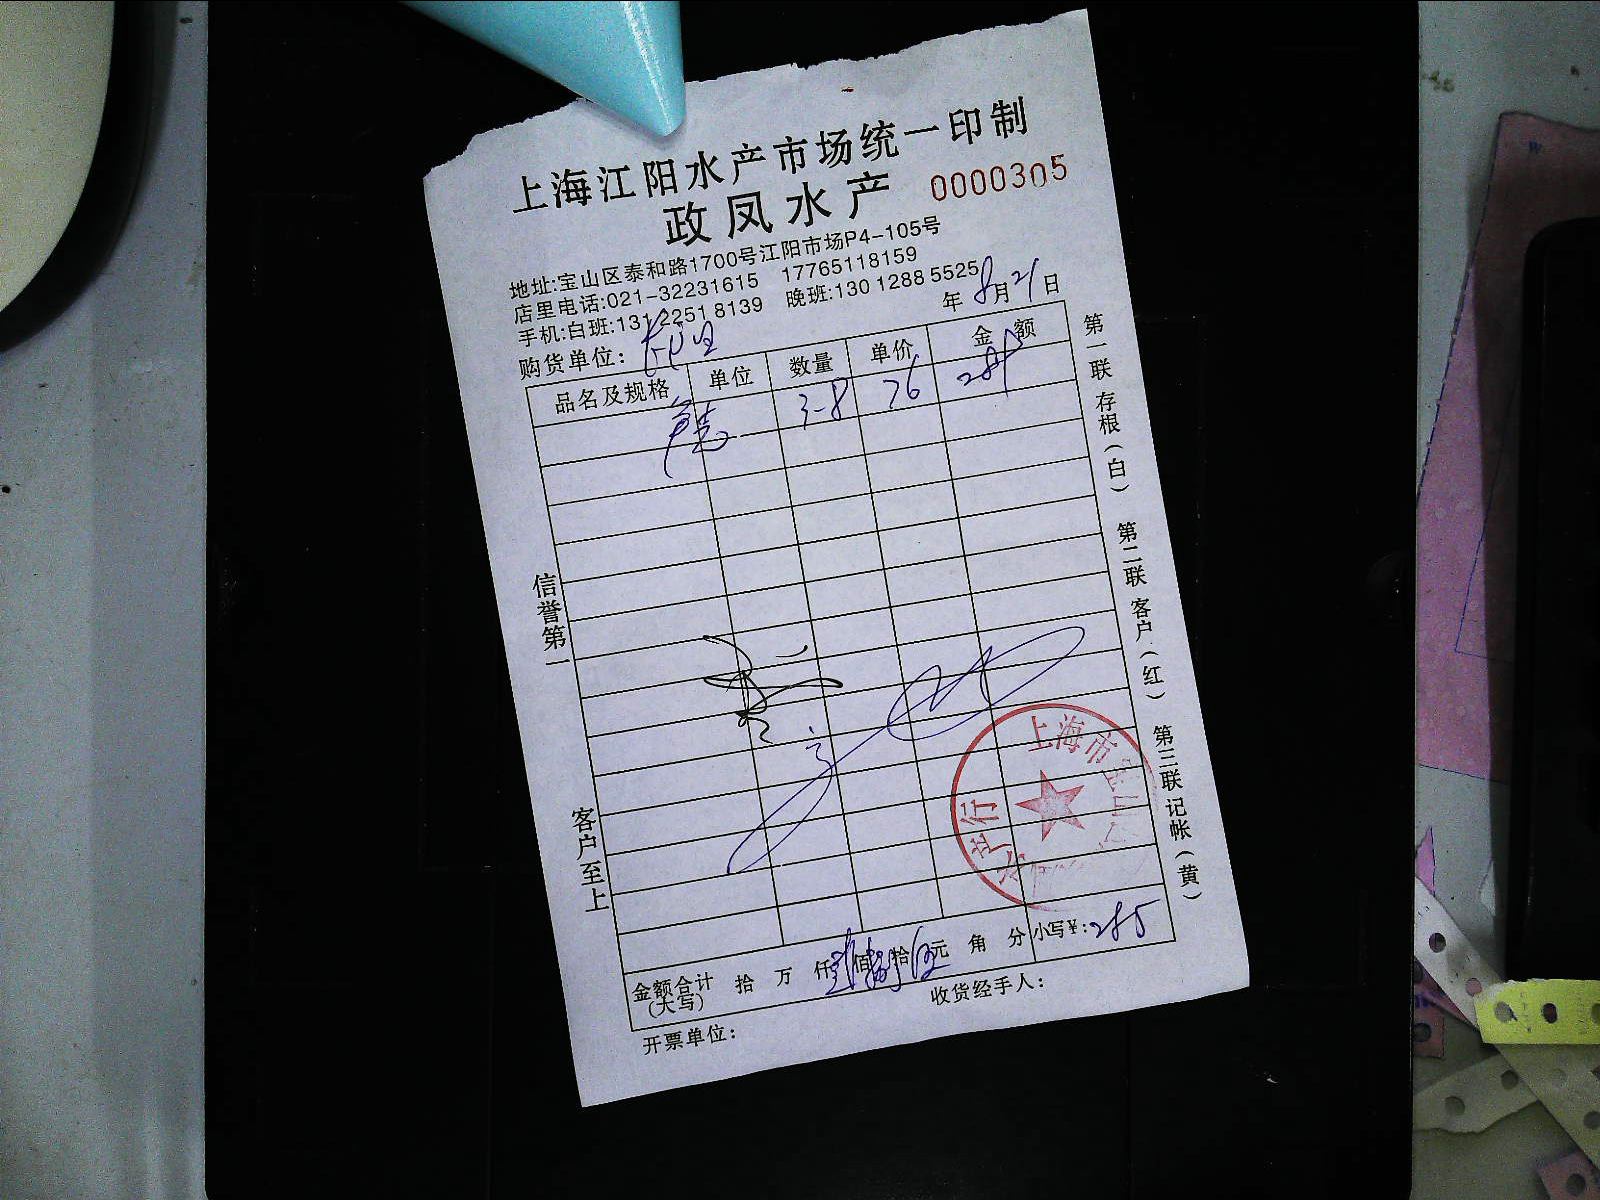 上海江阳水产市场统一印制
政凤水产 0000305
地址:宝山区泰和路1700号江阳市场P4-105号
店里电话:021-32231615 17765118159
手机:白班:131 2251 8139 晚班:130 1288 5525
年 8月21日
购货单位:
品名及规格 单位 数量 单价 金额
3-8 76 285
第一联 存根(白) 第二联 客户(红) 第三联 记帐(黄)
信誉第一 客户至上
上海市宝山区
产行
金额合计(大写) 拾 万 仟贰佰捌拾伍元 角 分 小写¥:285
开票单位: 收货经手人: